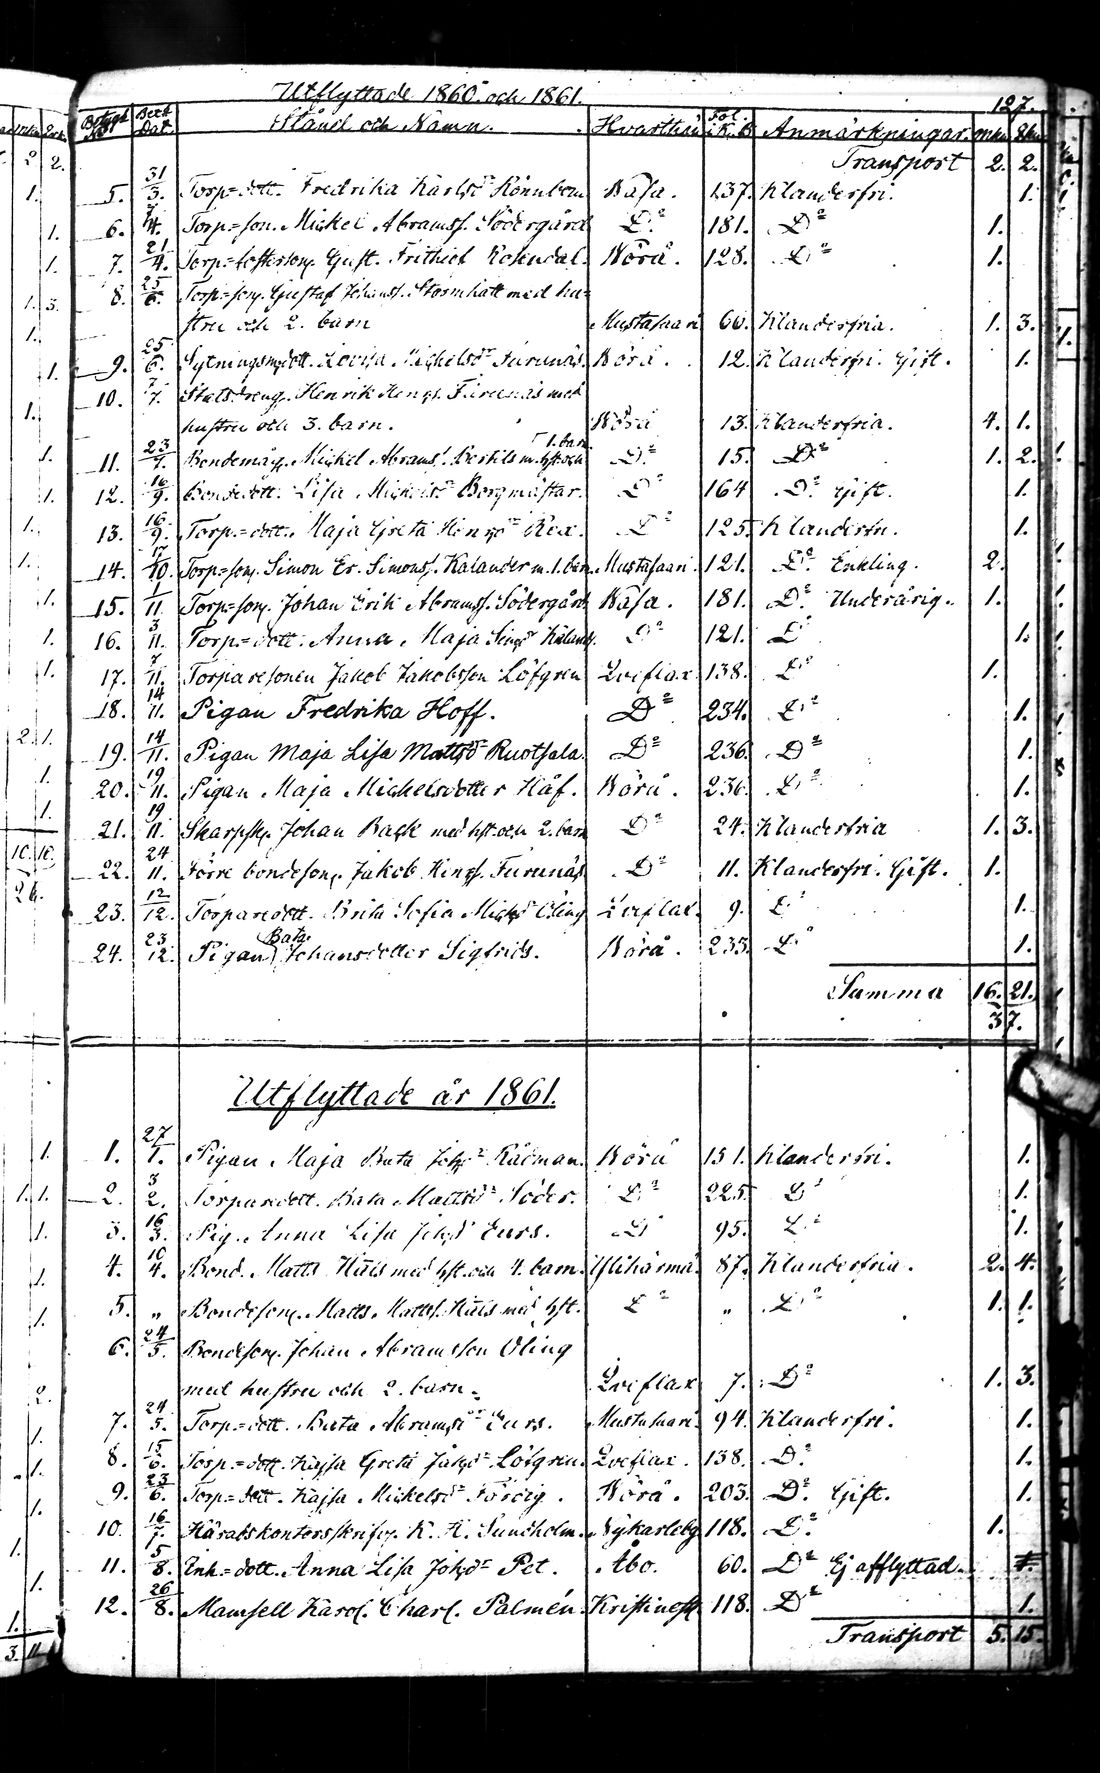 Utflyttade 1860 och 1861.
127.
Betygs No Bet. Dat. Stånd och Namn. Hvarthän Fol. i K. B. Anmärkningar. Mk. Qk.
Transport 2. 2.
5. 31/3. Torp=dott. Fredrika Karlsdr Rönnbom Wasa. 137. Klanderfri. 1.
6. 4. Torp=son. Mickel Abramss. Södergård Do. 181. Do 1.
7. 21/4. Torp=sosterson. Gust. Frithiof Rosendal. Wörå. 128. Do 1.
8. 25/6. Torp=son. Gustaf Johanss. Stormhatt med hu=
stru och 2. barn Mustasaari 60. Klanderfria. 1. 3.
9. 25/6. Sytningsm.dott. Lovisa Mickelsdr Furunäs. Wörå. 12. Klanderfri. Gift. 1.
10. 7/7. Statsdreng. Henrik Henrs. Furunäs med
hustru och 3. barn. Wörå 13. Klanderfria. 4. 1.
11. 23/7. Bondemåg. Mickel Abrams. Bertils m. hst. och 1. barn Do. 15. Do 1. 2.
12. 16/9. Bondedott. Lisa Mickelsdr Borgmästar. Do 164 Do. Gift. 1.
13. 16/9. Torp=dott. Maja Greta Henrsdr Rex. Do 125. Klanderfri. 1.
14. 17/10. Torp=son. Simon Er. Simonss. Kalander m. 1. barn. Mustasaari. 121. Do. Enkling. 2.
15. 1/11. Torp=son. Johan Erik Abramss. Södergård Wasa. 181. Do. Underårig. 1.
16. 3/11. Torp=dott. Anna Maja Simsdr Kaland. Do 121. Do 1.
17. 7/11. Torparesonen Jakob Jakobsson Löfgren Qveflax 138. Do 1.
18. 14/11. Pigan Fredrika Hoff. Do 234. Do 1.
19. 14/11. Pigan Maja Lisa Mattsdr Ruotsala. Do 236. Do 1.
20. 19/11. Pigan Maja Mickelsdotter Häf. Wörå. 236. Do 1.
21. 19/11. Skarpsk. Johan Back med hst. och 2. barn Do 24. Klanderfria 1. 3.
22. 24/11. Förre bondeson. Jakob Henrs. Furunäs Do 11. Klanderfri. Gift. 1.
23. 12/12. Torparedott. Brita Sofia Mickdr Öling Qveflax. 9. Do 1.
24. 23/12. Pigan Beata Johansdotter Sigfrids. Wörå. 233. Do 1.
Summa 16. 21.
37.
Utflyttade år 1861.
1. 27/1. Pigan Maja Beata Johsdr Rådman. Wörå 151. Klanderfri. 1.
2. 3/2. Torparedott. Beata Mattsdr Söder. Do 225. Do 1.
3. 16/3. Pig. Anna Lisa Johsdr Eurs. Do 95. Do 1.
4. 10/4. Bond. Matts Häls med hst. och 4. barn. Ylihärmä 87. Klanderfria. 2. 4.
5. „ Bondeson. Matts Matts. Häls med hst. Do „ Do 1. 1.
6. 24/5. Bondeson. Johan Abramsson Öling
med hustru och 2. barn. Qveflax 7. Do 1. 3.
7. 24/5. Torp=dott. Beata Abramsdr Eurs. Mustasaari 94. Klanderfri. 1.
8. 15/6. Torp.=dott. Kajsa Greta Jakdr Löfgren. Qveflax. 138. Do. 1.
9. 23/6. Torp=dott. Kajsa Mickelsdr Fördig. Wörå. 203. Do. Gift. 1.
10. 16/7. Häradskontorsskrifv. K. H. Sundholm. Nykarleby 118. Do. 1.
11. 5/8. Inh=dott. Anna Lisa Johsdr Pet. Åbo. 60. Do Ej afflyttad. 1.
12. 26/8. Mamsell Karol. Charl. Palmén. Kristinest 118. Do 1.
Transport 5. 15.